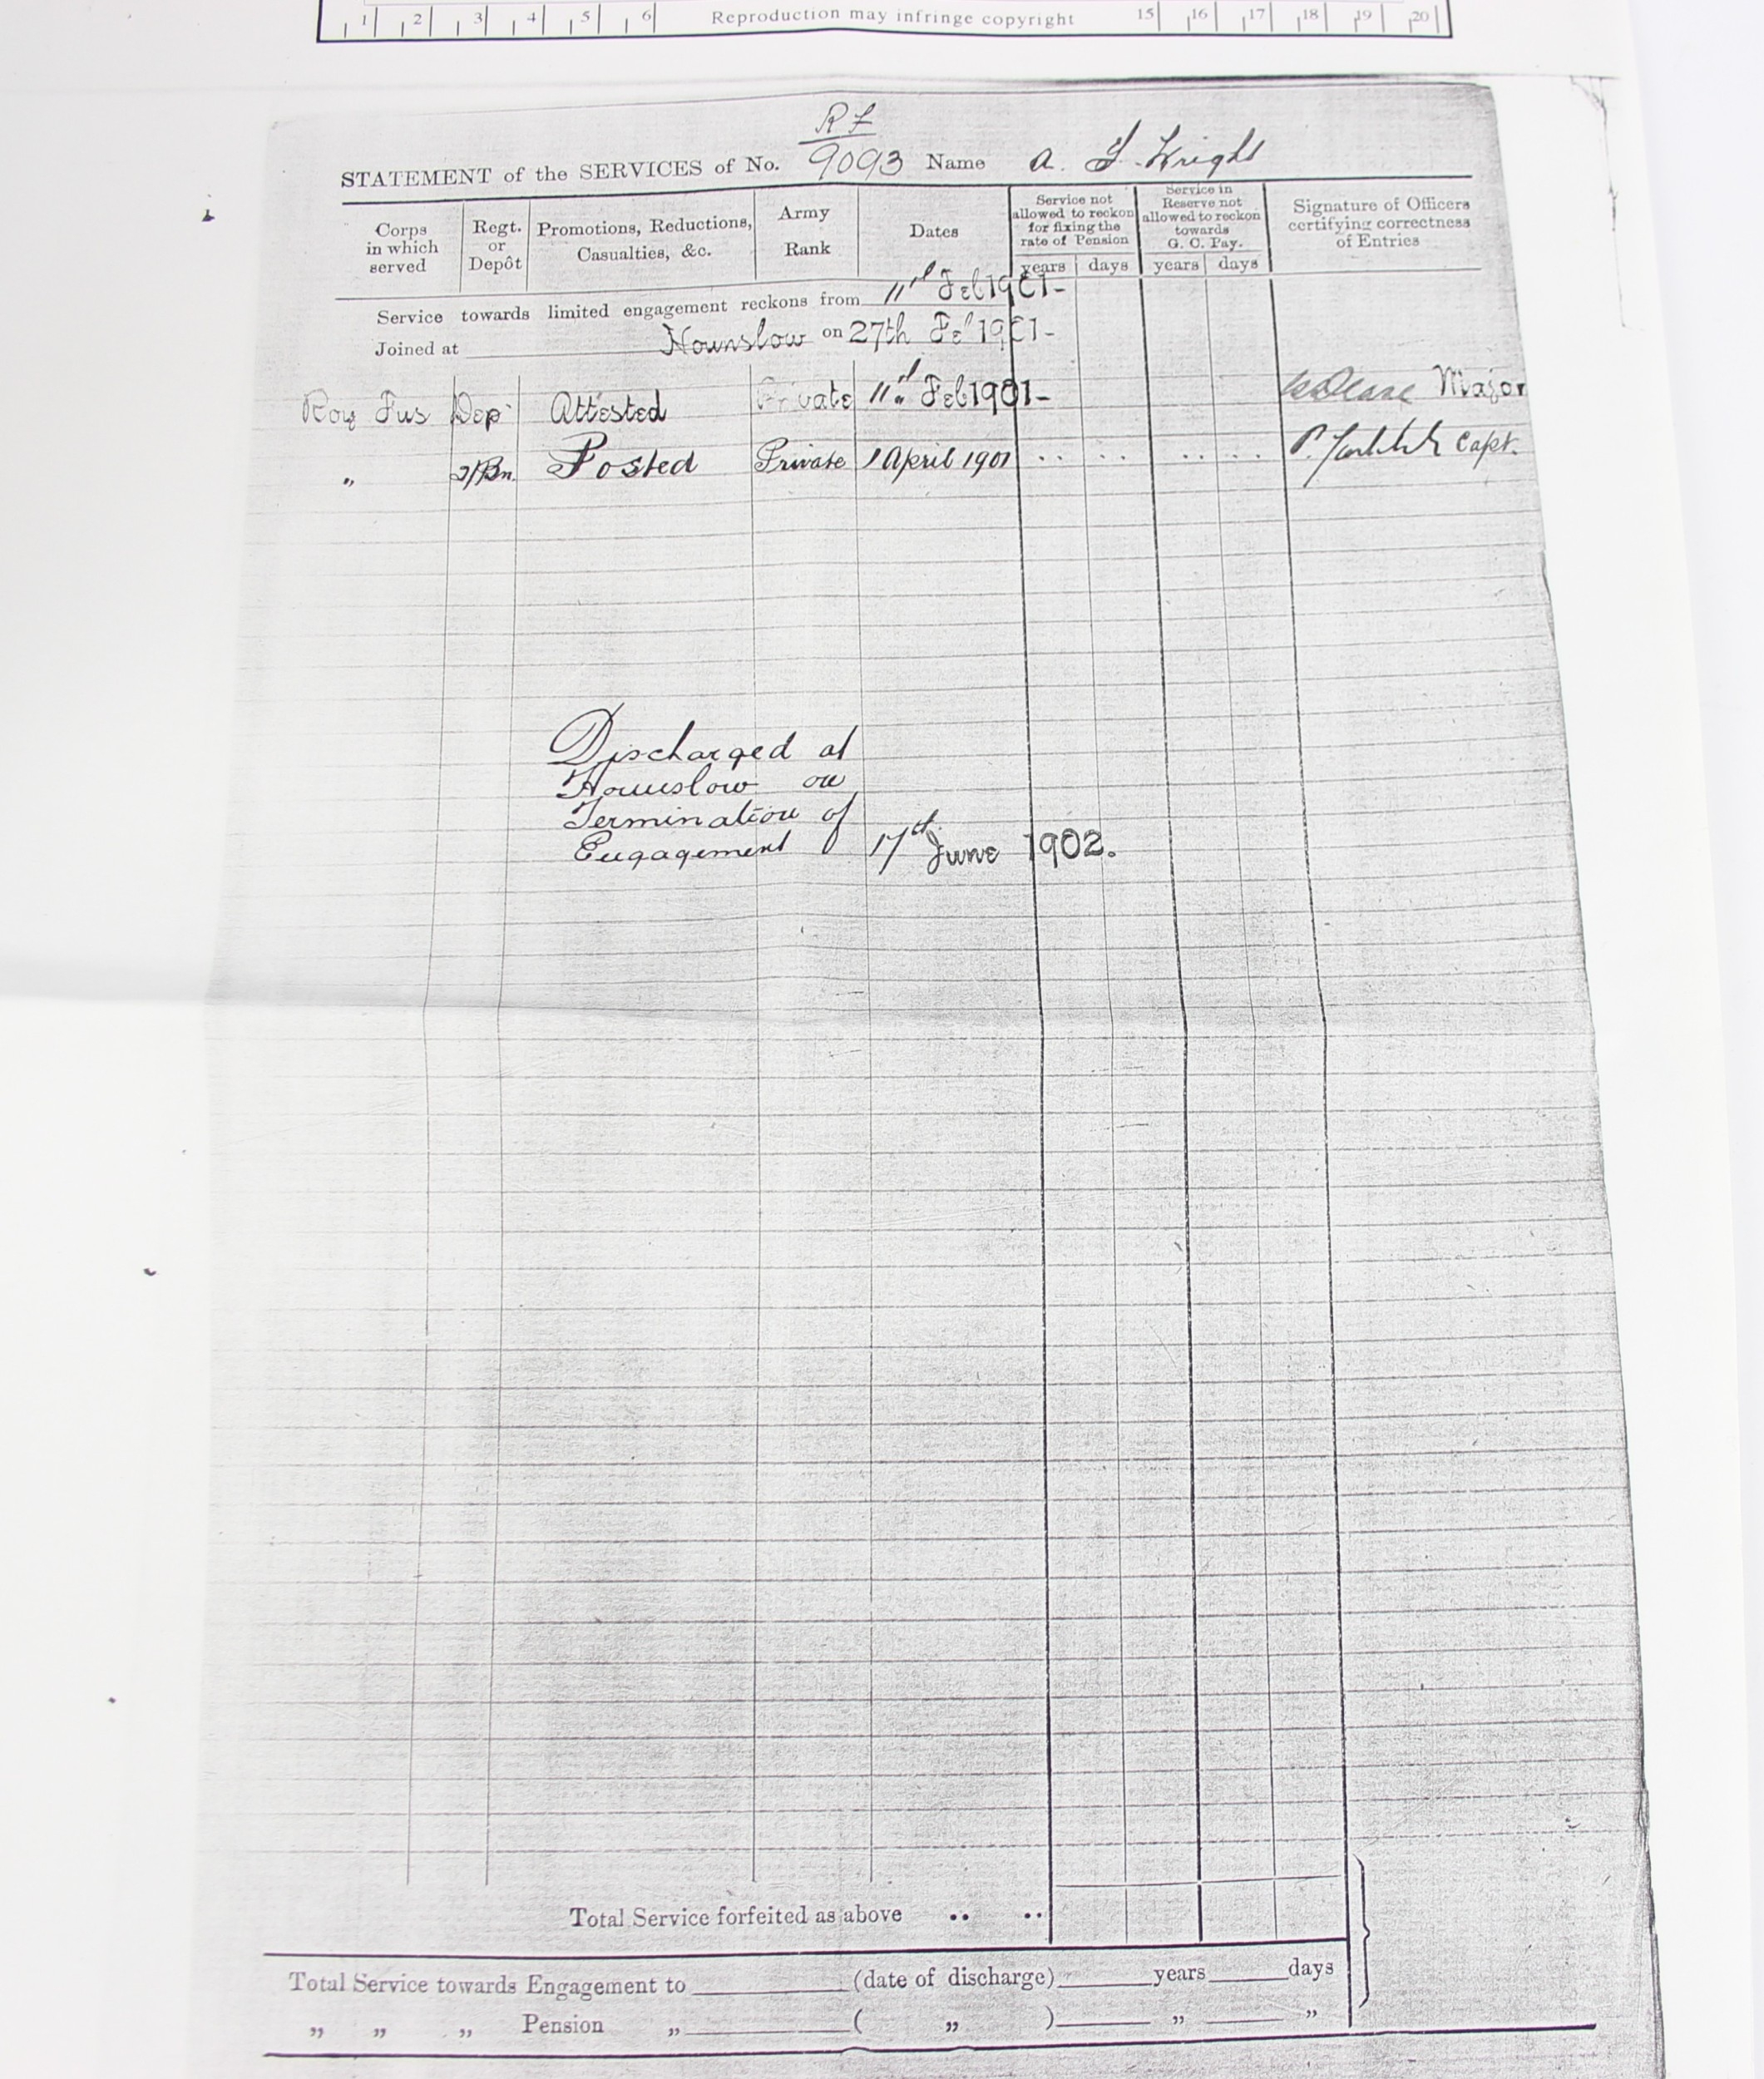 1 2 3 4 5 6 Reproduction may infringe copyright 15 16 17 18 19 20
RF
STATEMENT of the SERVICES of No. 9093 Name A. Wright
Corps in which served
Regt. or Depôt
Promotions, Reductions, Casualties, &c.
Army Rank
Dates
Service not allowed to reckon for fixing the rate of Pension
Service in Reserve not allowed to reckon towards G. C. Pay.
Signature of Officers certifying correctness of Entries
years days years days
Service towards limited engagement reckons from 11th Feb 1901-
Joined at Hounslow on 27th Feb 1901-
Roy Fus Dep Attested Private 11th Feb 1901- Major
„ 2/Bn. Posted Private 1 April 1901 .. .. .. .. Capt.
Discharged at
Hounslow on
Termination of
Engagement 17th June 1902.
Total Service forfeited as above .. ..
Total Service towards Engagement to (date of discharge) years days
„ „ „ Pension „ ( „ ) „ „